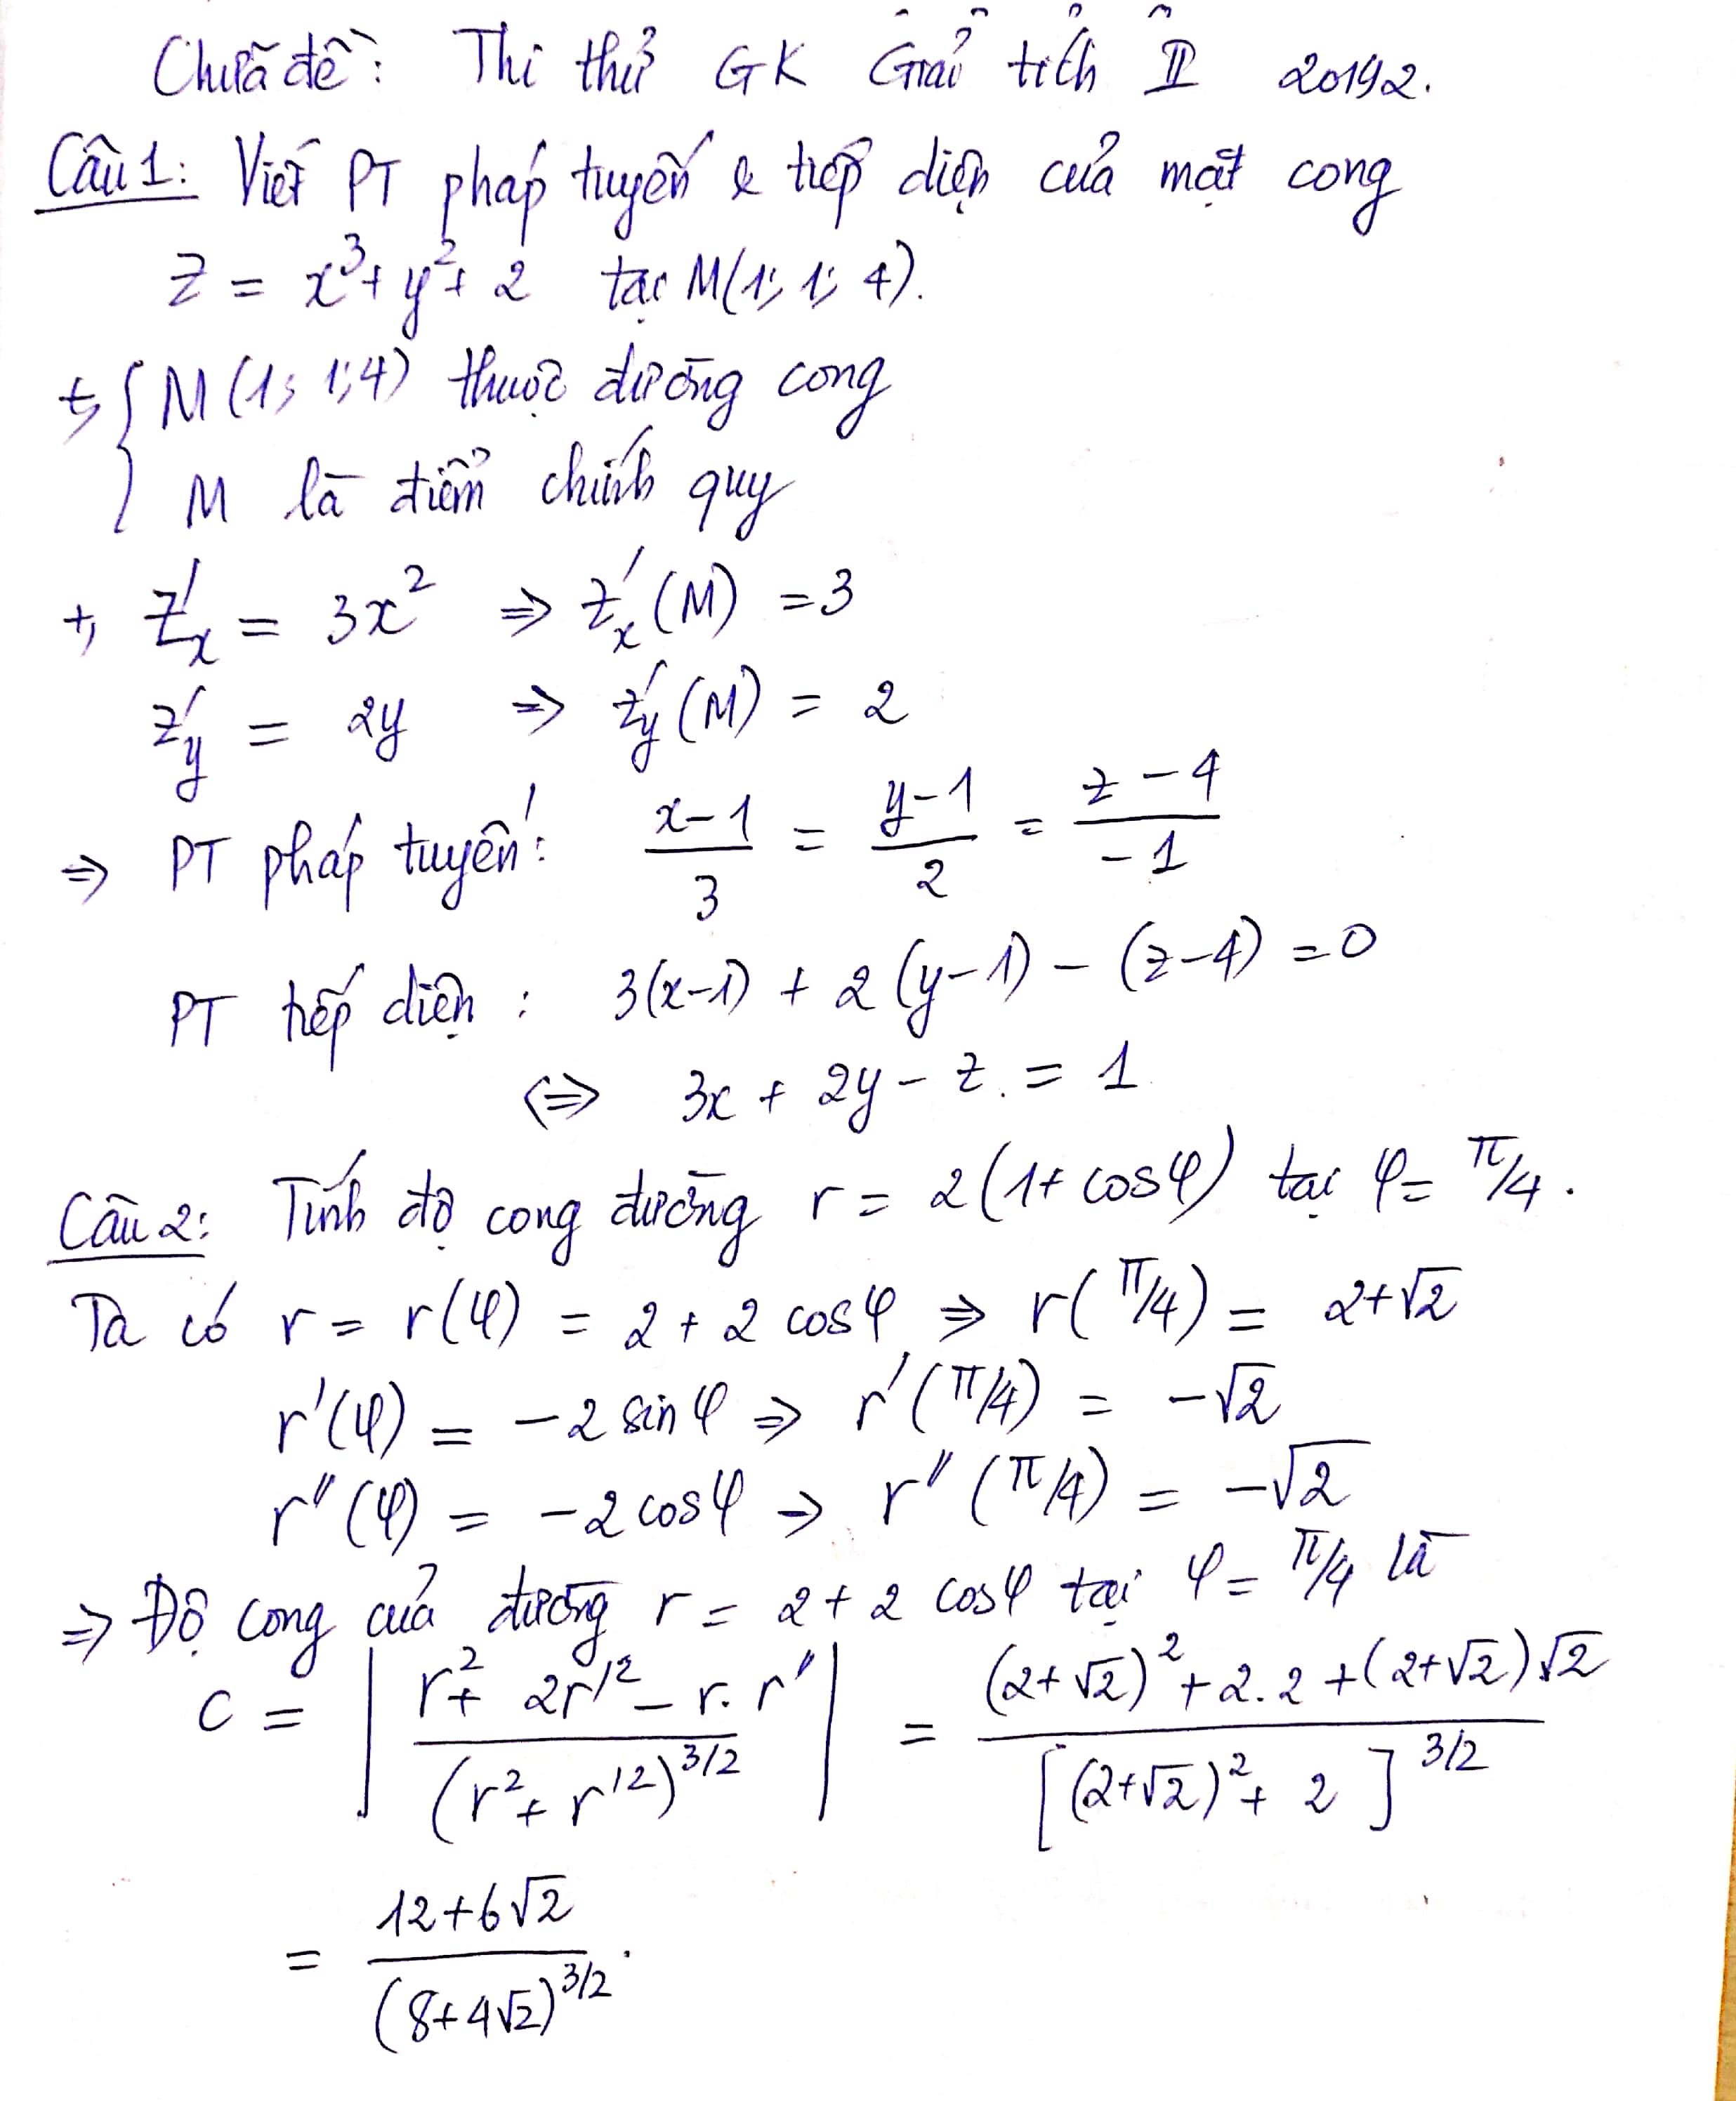 Chữa đề: Thi thử GK Giải tích II 20192.
Câu 1: Viết PT pháp tuyến & tiếp diện của mặt cong
z = x³ + y² + 2 tại M(1; 1; 4).
+, { M(1; 1; 4) thuộc đường cong
M là điểm chính quy
+, z'ₓ = 3x² => z'ₓ(M) = 3
z'y = 2y => z'y(M) = 2
=> PT pháp tuyến: (x-1)/3 = (y-1)/2 = (z-4)/-1
PT tiếp diện: 3(x-1) + 2(y-1) - (z-4) = 0
<=> 3x + 2y - z = 1
Câu 2: Tính độ cong đường r = 2(1+cosφ) tại φ = π/4.
Ta có r = r(φ) = 2 + 2cosφ => r(π/4) = 2+√2
r'(φ) = -2sinφ => r'(π/4) = -√2
r''(φ) = -2cosφ => r''(π/4) = -√2
=> Độ cong của đường r = 2 + 2cosφ tại φ = π/4 là
C = |(r² + 2r'² - r.r'')/(r² + r'²)^3/2| = ((2+√2)² + 2.2 + (2+√2)√2)/[(2+√2)² + 2]^3/2
= (12+6√2)/(8+4√2)^3/2.